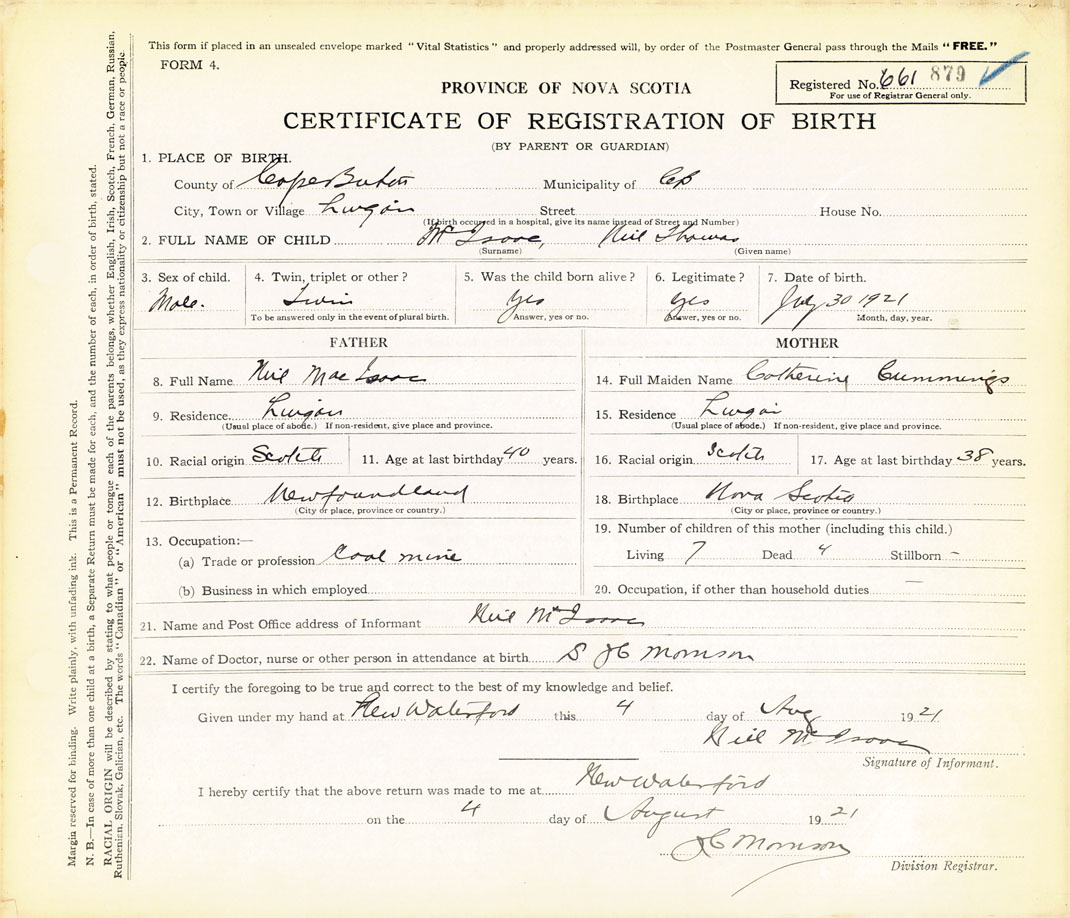 This form if placed in an unsealed envelope marked "Vital Statistics" and properly addressed will, by order of the Postmaster General pass through the Mails "FREE."
FORM 4.
Registered No. 661 879
For use of Registrar General only.
PROVINCE OF NOVA SCOTIA
CERTIFICATE OF REGISTRATION OF BIRTH
(BY PARENT OR GUARDIAN)
1. PLACE OF BIRTH.
County of Cape Breton Municipality of CB
City, Town or Village Lingan Street House No.
(If birth occurred in a hospital, give its name instead of Street and Number)
2. FULL NAME OF CHILD Mc Isaac, Neil Thomas
(Surname) (Given name)
3. Sex of child. 4. Twin, triplet or other? 5. Was the child born alive? 6. Legitimate? 7. Date of birth.
Male. Twin Yes Yes July 30 1921
To be answered only in the event of plural birth. Answer, yes or no. Answer, yes or no. Month, day, year.
FATHER
8. Full Name Neil Mac Isaac
9. Residence Lingan
(Usual place of abode.) If non-resident, give place and province.
10. Racial origin Scotch 11. Age at last birthday 40 years.
12. Birthplace Newfoundland
(City or place, province or country.)
13. Occupation:—
(a) Trade or profession Coal mine
(b) Business in which employed
MOTHER
14. Full Maiden Name Catherine Cummings
15. Residence Lingan
(Usual place of abode.) If non-resident, give place and province.
16. Racial origin Scotch 17. Age at last birthday 38 years.
18. Birthplace Nova Scotia
(City or place, province or country.)
19. Number of children of this mother (including this child.)
Living 7 Dead 4 Stillborn -
20. Occupation, if other than household duties —
21. Name and Post Office address of Informant Neil Mc Isaac
22. Name of Doctor, nurse or other person in attendance at birth Morrison
I certify the foregoing to be true and correct to the best of my knowledge and belief.
Given under my hand at New Waterford this 4 day of Aug 1921
Neil Mc Isaac
Signature of Informant.
I hereby certify that the above return was made to me at New Waterford
on the 4 day of August 1921
Morrison
Division Registrar.
Margin reserved for binding. Write plainly, with unfading ink. This is a Permanent Record.
N. B.—In case of more than one child at a birth, a Separate Return must be made for each, and the number of each, in order of birth, stated.
RACIAL ORIGIN will be described by stating to what people or tongue each of the parents belongs, whether English, Irish, Scotch, French, German, Russian,
Ruthenian, Slovak, Galician, etc. The words "Canadian" or "American" must not be used, as they express nationality or citizenship but not a race or people.